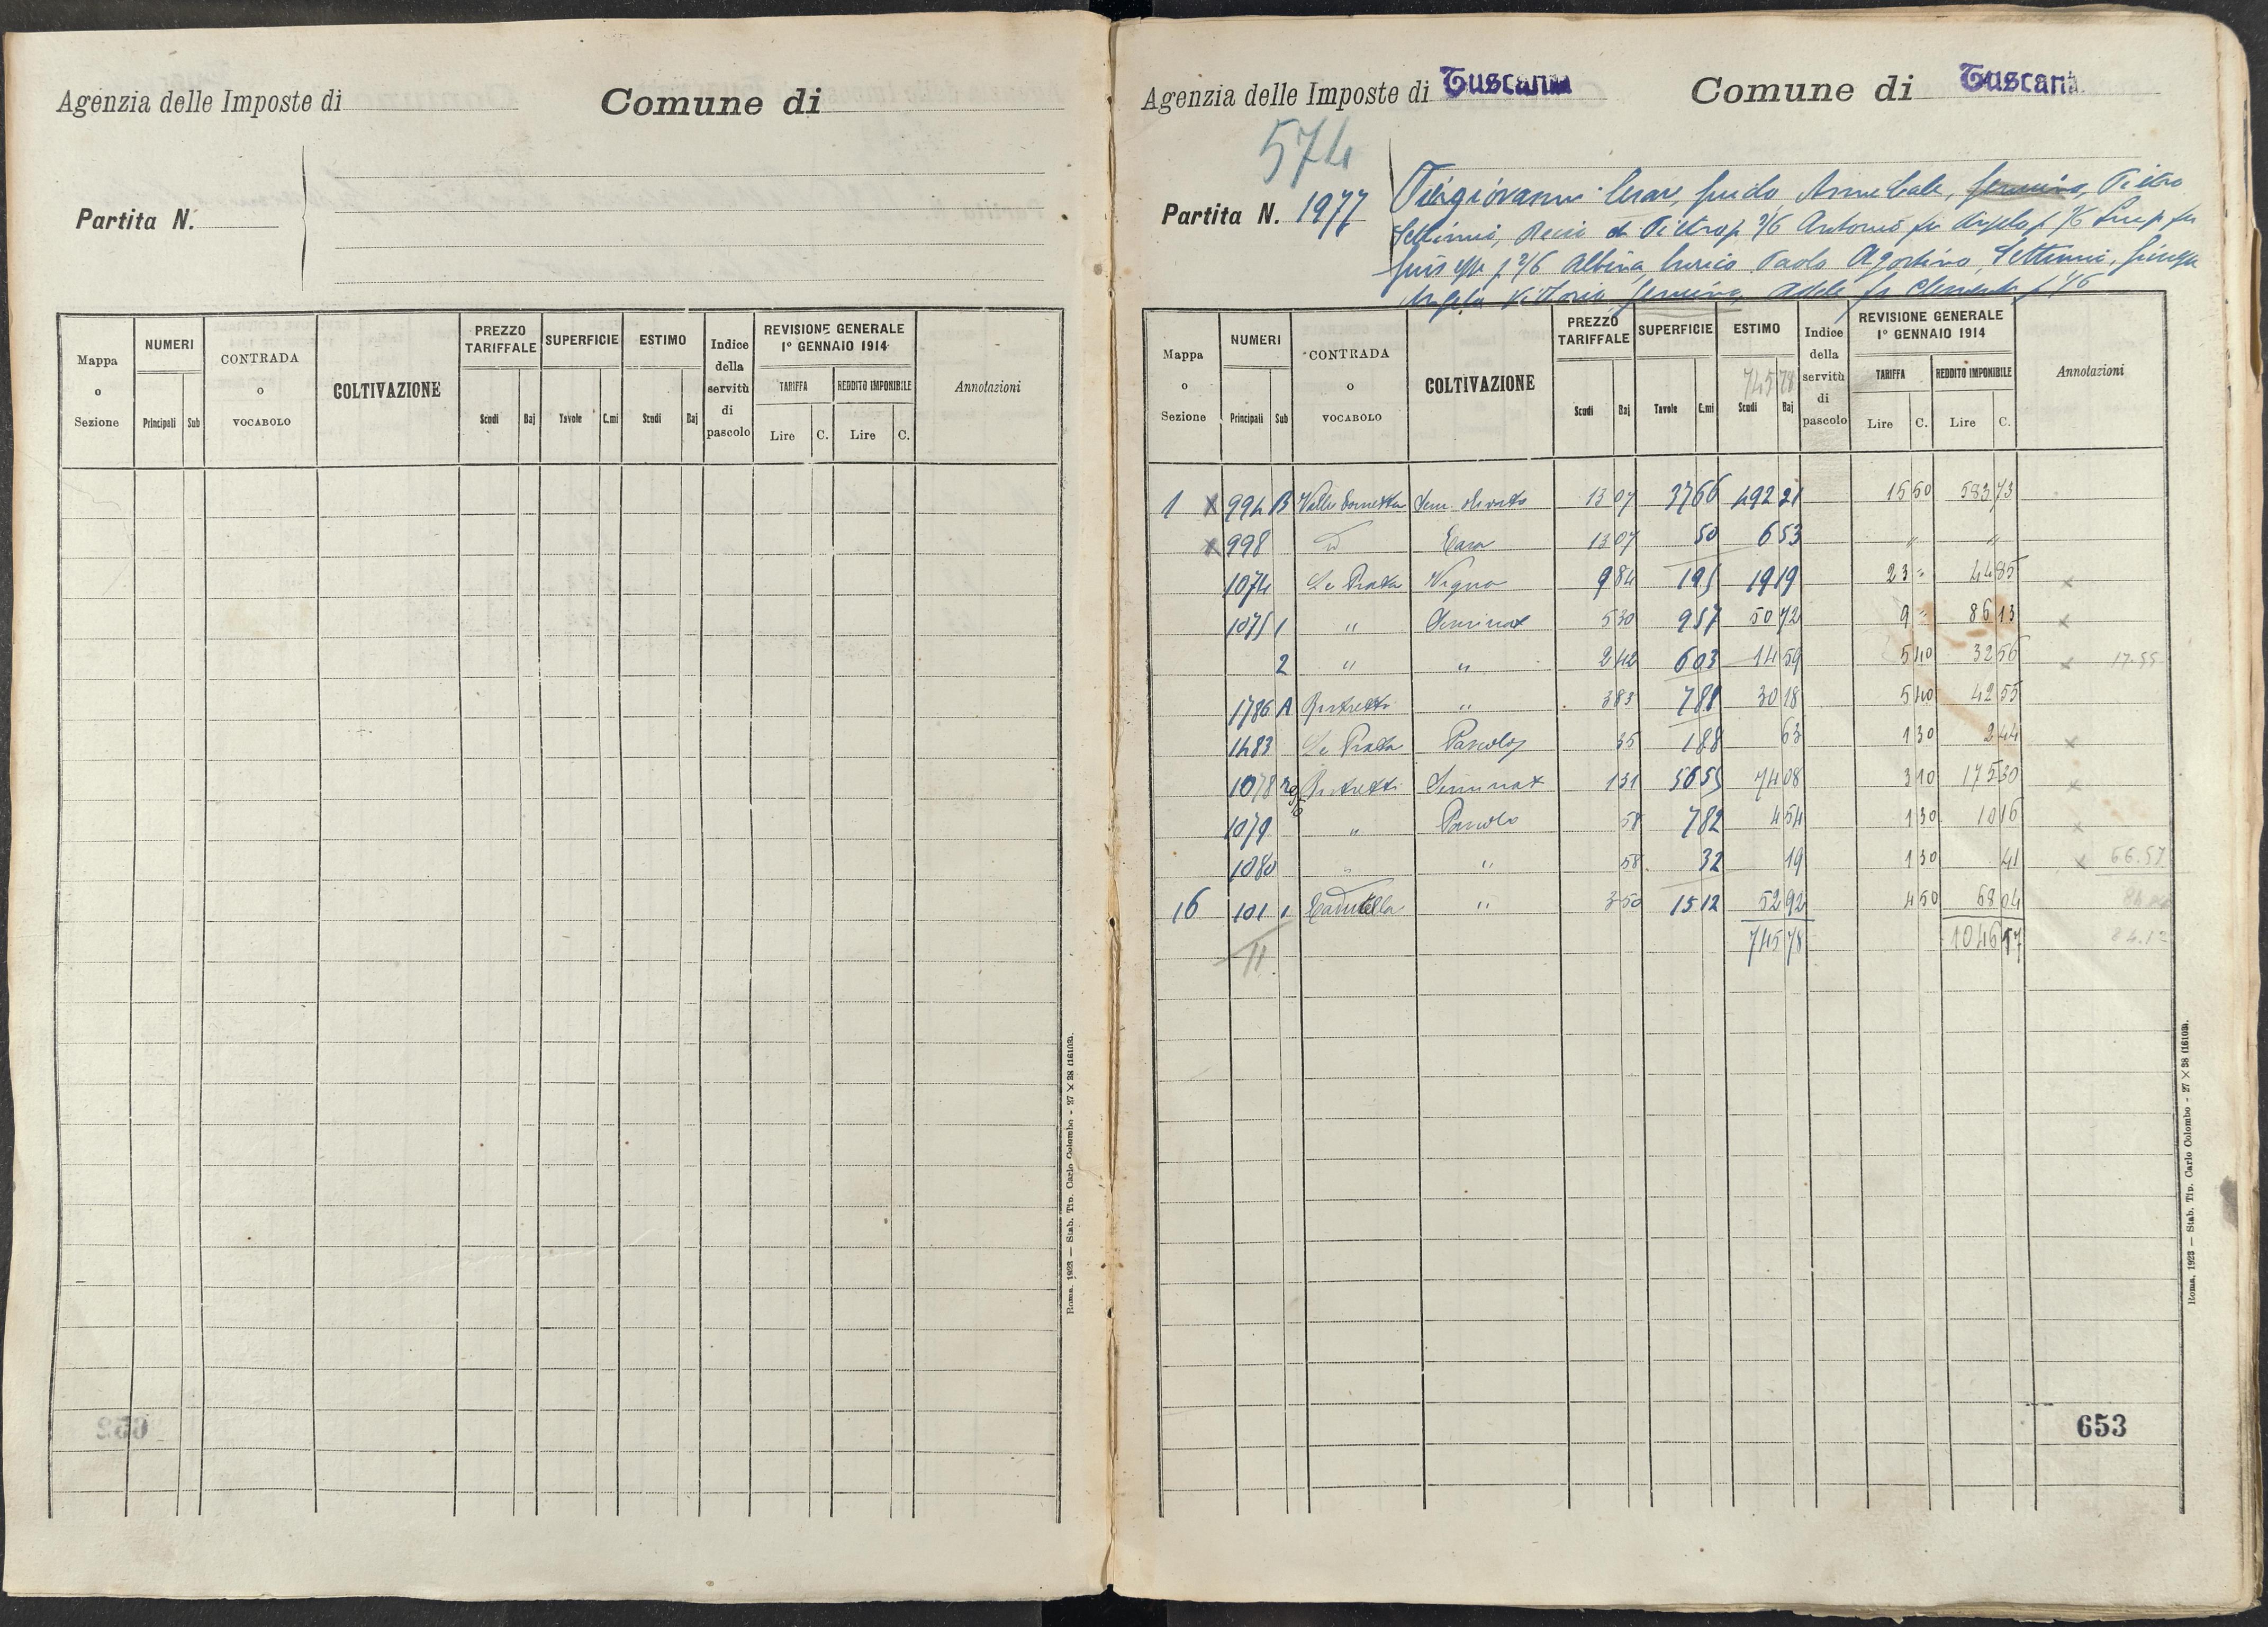 Agenzia delle Imposte di
Comune di
Partita N.
Mappa o Sezione
NUMERI
Principali Sub
CONTRADA o VOCABOLO
COLTIVAZIONE
PREZZO TARIFFALE
Scudi Baj
SUPERFICIE
Tavole C.mi
ESTIMO
Scudi Baj
Indice della servitù di pascolo
REVISIONE GENERALE
1° GENNAIO 1914
TARIFFA
Lire C.
REDDITO IMPONIBILE
Lire C.
Annotazioni
Roma, 1923 — Stab. Tip. Carlo Colombo - 27 × 38 (16103).
Agenzia delle Imposte di Tuscania
Comune di Tuscania
574
Partita N. 1977
Piergiovanni Cesare, Guido, Annibale, Pietro
Settimio, di Pietro p 2/6 Antonio fu Angelo p 1/6 fu
Giuseppe p 2/6 Albina, Enrico Paolo Agostino, Settimio, Giuseppe
Angela Vittoria Gemina, Adele fu Clemente p 1/6
Mappa o Sezione
NUMERI
Principali Sub
CONTRADA o VOCABOLO
COLTIVAZIONE
PREZZO TARIFFALE
Scudi Baj
SUPERFICIE
Tavole C.mi
ESTIMO
745 78
Scudi Baj
Indice della servitù di pascolo
REVISIONE GENERALE
1° GENNAIO 1914
TARIFFA
Lire C.
REDDITO IMPONIBILE
Lire C.
Annotazioni
1 x 994 B Valle Sem. 13 07 37 66 492 21 15 50 583 73
x 998 id Casa 13 07 50 6 53 " "
1074 Le Prata Vigna 9 84 1 95 19 19 23 " 44 85 x
1075 1 " Seminat 5 30 9 57 50 72 9 " 86 13 x
2 " " 2 42 6 03 14 59 5 40 32 56 x 17.55
1786 A Ristretti " 3 83 7 88 30 18 5 40 42 55
1483 Le Prata Pascolo 35 1 88 63 1 30 2 44 x
1078 Ristretti Seminat 1 31 56 55 74 08 3 10 175 30 x
1079 " Pascolo 58 7 82 4 54 1 30 10 16 x
1080 " " 58 32 19 1 30 41 x 66.57
16 101 1 Cadutella " 3 50 15 12 52 92 4 50 68 04
11 745 78 1046 17 84.12
653
Roma, 1923 — Stab. Tip. Carlo Colombo - 27 × 38 (16103).